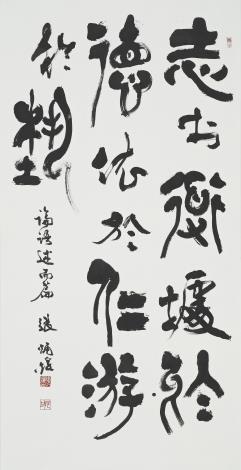 志于道據於
德依於仁游
於藝
論語述而篇 張